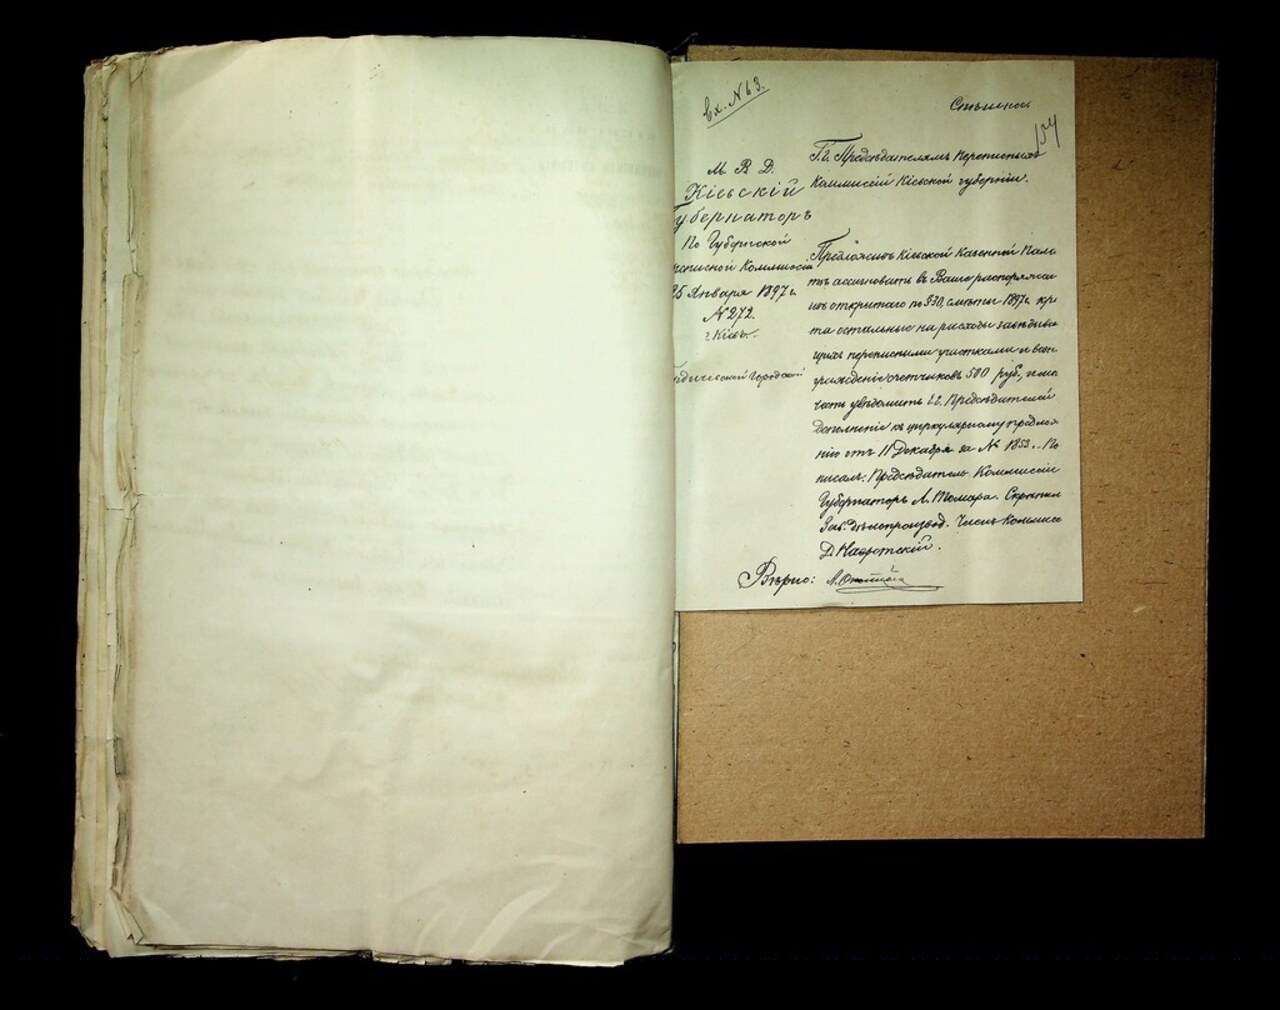 Вх. № 63.
154
М. В. Д.
Кіевскій
Губернаторъ
По Губернской
Коммиссіи
25 Января 1897 г.
№ 272.
г. Кіевъ.
Городской
Г.г. Предсѣдателямъ Переписныхъ
Коммиссій Кіевской губерніи.
Предложивъ Кіевской Казенной Пала
тѣ ассигновать въ Ваше распоряжен
изъ открытаго по § 30, смѣты 1897 г. кре
та остальные на расходы завѣдыва
щихъ переписными участками и возн
гражденіе счетчиковъ 500 руб.,
увѣдомить г.г. Предсѣдателей
Дополненіе къ циркулярному предло
нію отъ 11 Декабря за № 1853. По
писалъ: Предсѣдатель Коммиссіи
Губернаторъ Л. Томара. Скрѣпилъ
Зав. дѣлопроизвод. Членъ Коммис
Д. Навротскій.
Вѣрно: